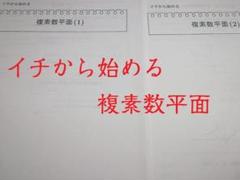 イチから始める
複素数平面(1)
複素数平面(2)
イチから始める
複素数平面